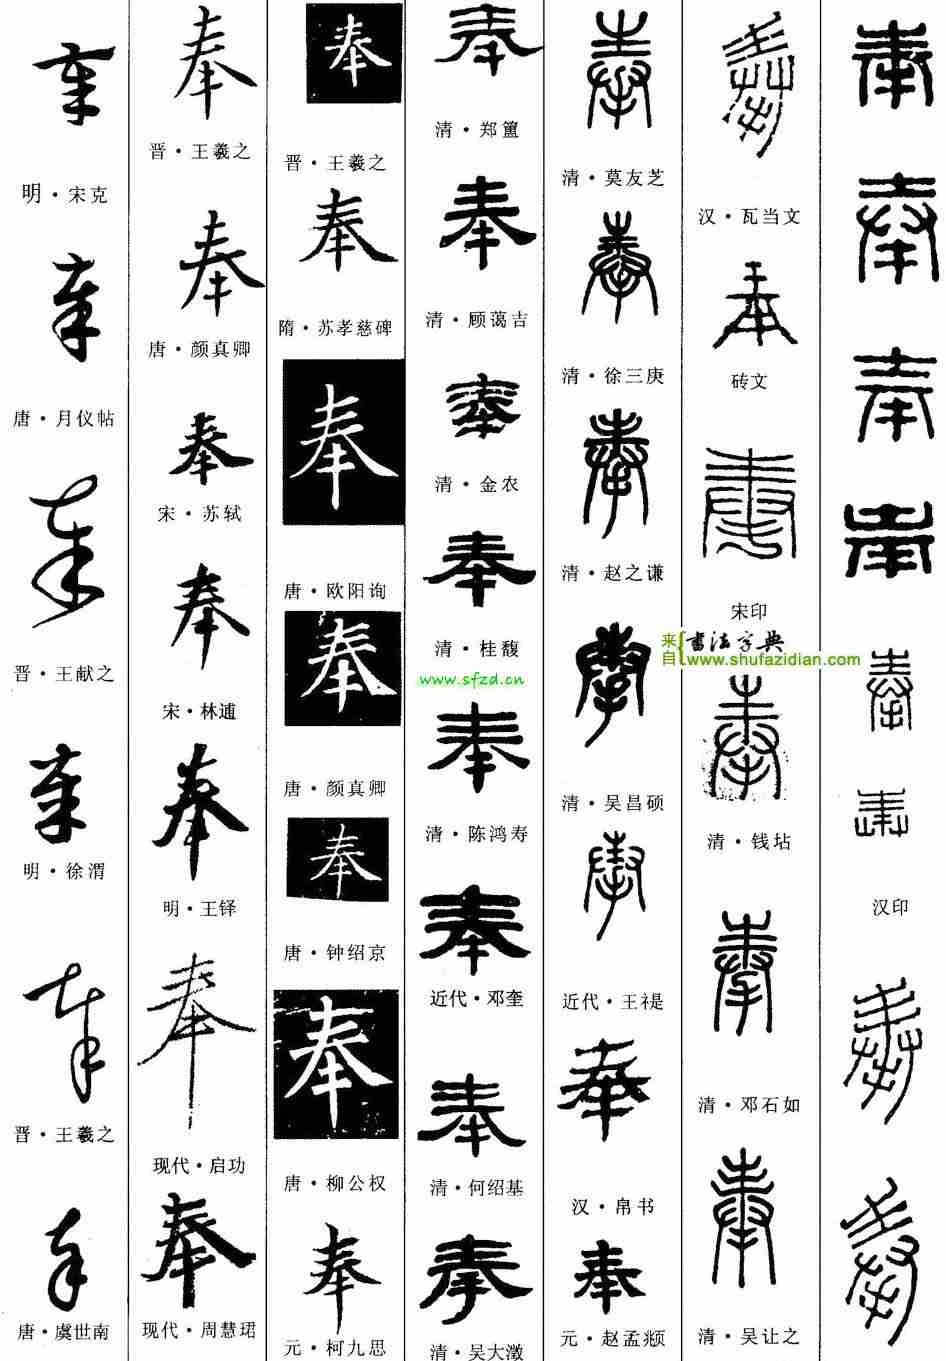 奉
明·宋克
奉
唐·月仪帖
奉
晋·王献之
奉
明·徐渭
奉
晋·王羲之
奉
唐·虞世南
奉
晋·王羲之
奉
唐·颜真卿
奉
宋·苏轼
奉
宋·林逋
奉
明·王铎
奉
现代·启功
奉
现代·周慧珺
奉
晋·王羲之
奉
隋·苏孝慈碑
奉
唐·欧阳询
奉
唐·颜真卿
奉
唐·钟绍京
奉
唐·柳公权
奉
元·柯九思
奉
清·郑簠
奉
清·顾蔼吉
奉
清·金农
奉
清·桂馥
www.sfzd.cn
奉
清·陈鸿寿
奉
近代·邓奎
奉
清·何绍基
奉
清·吴大澂
奉
清·莫友芝
奉
清·徐三庚
奉
清·赵之谦
奉
清·吴昌硕
奉
近代·王禔
奉
汉·帛书
奉
元·赵孟頫
奉
汉·瓦当文
奉
砖文
奉
宋印
来自 书法字典
www.shufazidian.com
奉
清·钱坫
奉
清·邓石如
奉
清·吴让之
奉
奉
奉
奉
奉
奉
汉印
奉
奉